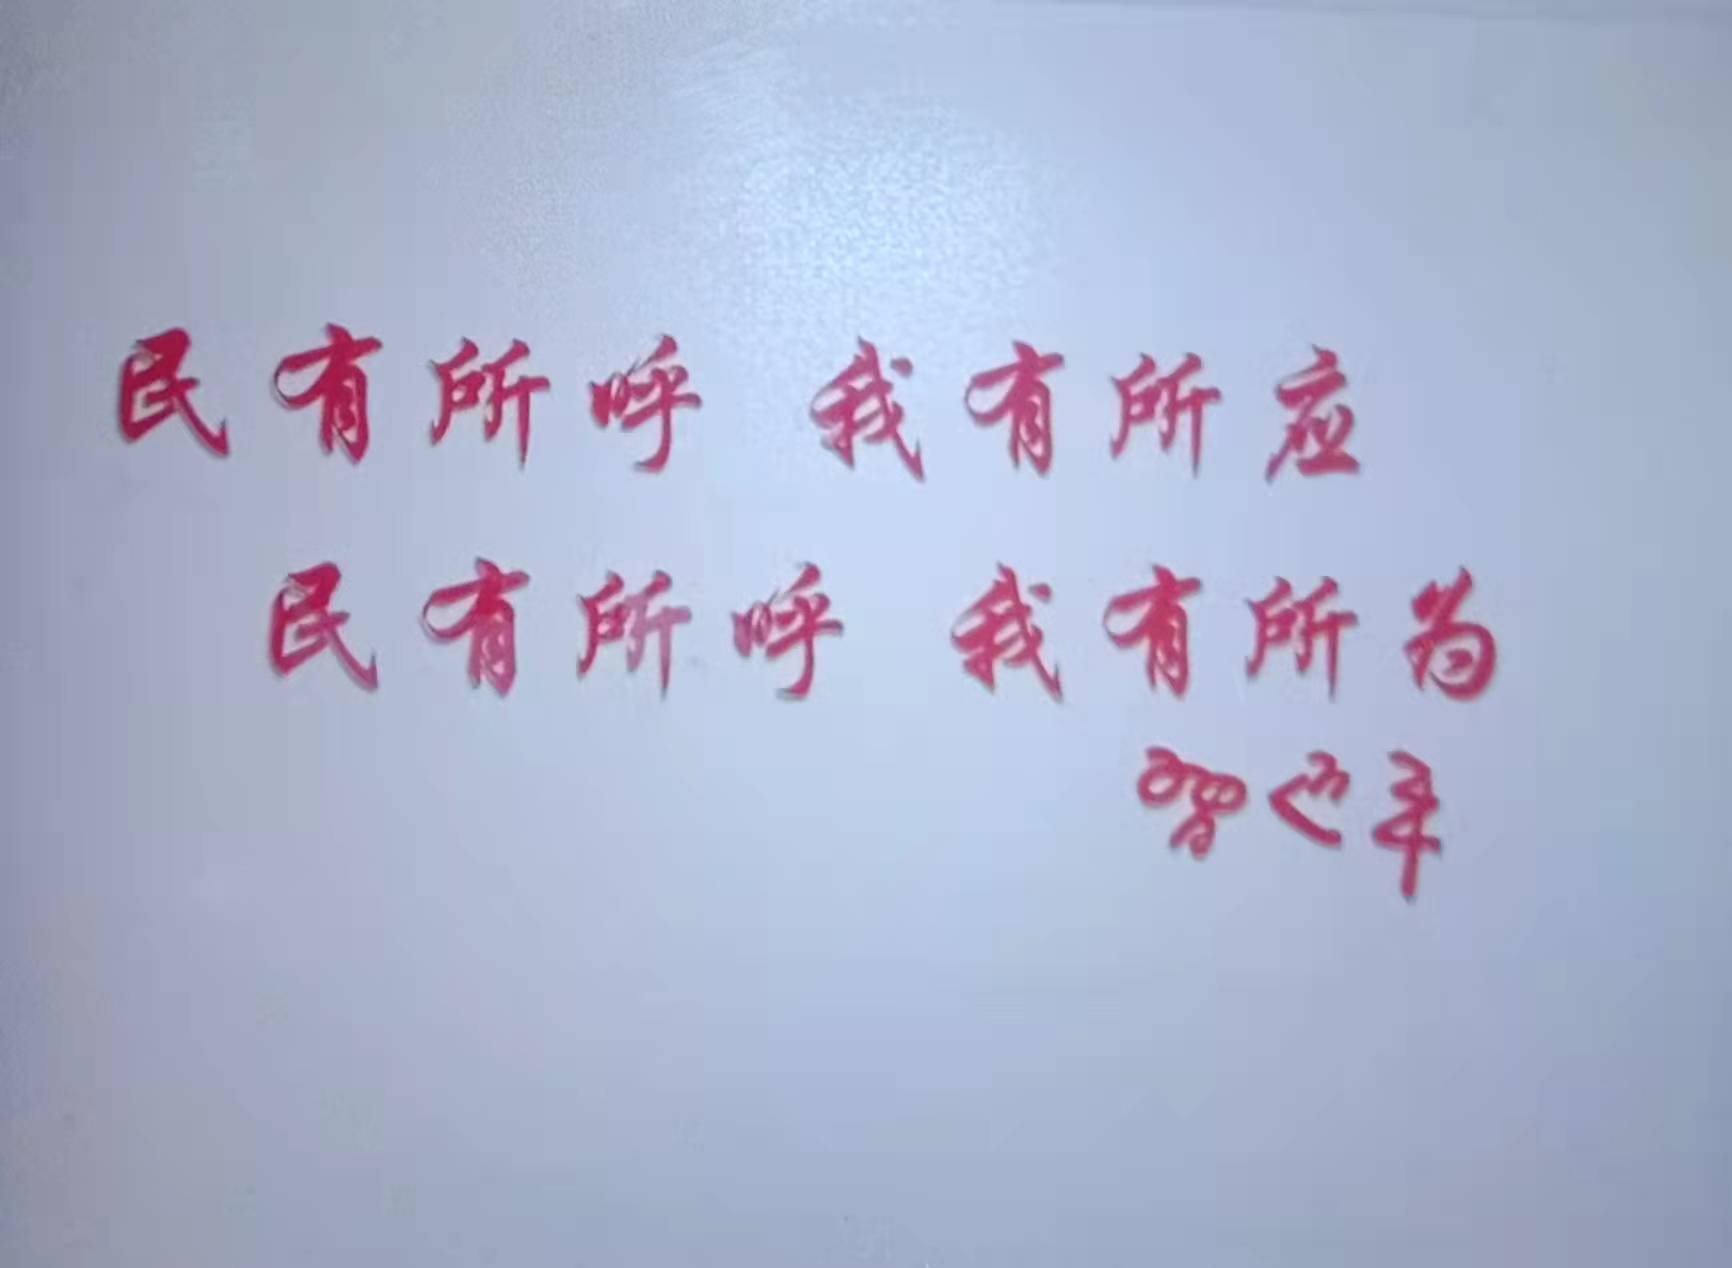 民有所呼 我有所应
民有所呼 我有所为